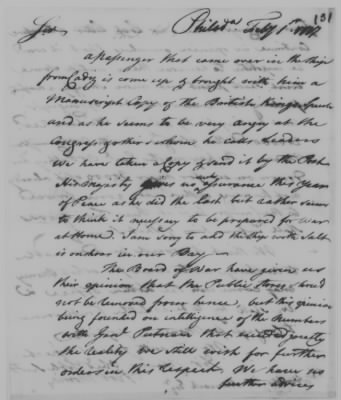 131
Philad.a Feby 1st 1777
Sir
A passenger that came over in the ship
from Cadiz is come up & brought with him a
Manuscript Copy of the British Kings Speech
and as he seems to be very angry at the
Congress & others whom he calls Leaders
We have taken a Copy & send it by the Post
His Majesty gives us no assurance this year
of Peace as he did the last but rather seems
to think it necessary to be prepared for war
at Home. I am sorry to add the Ship with Salt
is onshore in our Bay
The Board of War have given us
their opinion that the Public Stores should
not be removed from hence, but this opinion
being founded on intelligence of the Numbers
with Genl Putnam that exceeded greatly
the reality, we still wish for further
orders in this respect. We have no
further advices